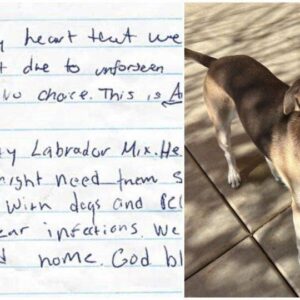 y heart that we
t due to unforseen
no choice. This is A
ty Labrador Mix. He
might need them s
with dogs and
ear infections. We
d home. God bl